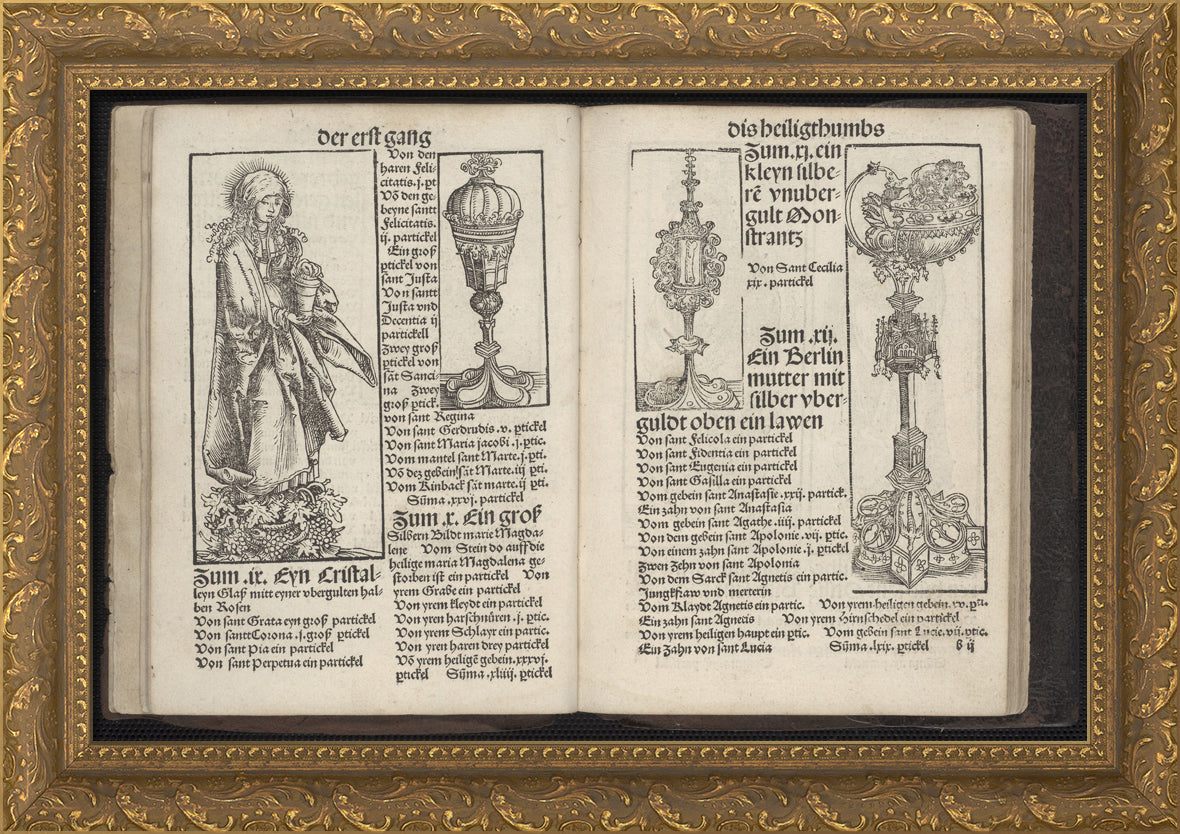 der erst gang
Von den
haren Feli-
citatis .j. pt
Võ den ge-
beyne santt
Felicitatis.
ij. partickel
Ein groß
ptickel von
sant Justa
Von santt
Justa vnd
Decentia ij
partickell
Zwey groß
ptickel von
sãt Sanci-
na Zwey
groß ptick.
von sant Regina
Von sant Gerdrudis .v. ptickel
Von sant Maria jacobi .j. ptic.
Vom mantel sant Marte .j. pti.
Võ dez gebein sãt Marte .iij pti.
Vom Kinback sãt marte .ij pti.
Sũma .xxvj. partickel
Zum .ix. Eyn Cristal-
leyn Glaß mitt eyner vbergulten hal-
ben Rosen
Von sant Grata eyn groß partickel
Von santt Corona .j. groß ptickel
Von sant Pia ein partickel
Von sant Perpetua ein partickel
Zum .x. Ein groß
Silbern Bildt marie Magda-
lene Vom Stein do auff die
heilige maria Magdalena ge-
storben ist ein partickel Von
yrem Grabe ein partickel
Von yrem kleydt ein partickel
Von yren harschnüren .j. ptic.
Von yrem Schlayr ein partic.
Von yren haren drey partickel
Võ yrem heiligẽ gebein .xxxvj.
ptickel Sũma .xliiij ptickel
dis heiligthumbs
Zum .xj. ein
kleyn silbe-
rẽ vnuber-
gult Mon-
strantz
Von Sant Cecilia
xix. partickel
Zum .xij.
Ein Berlin
mutter mit
silber vber-
guldt oben ein lawen
Von sant Felicola ein partickel
Von sant Fidentia ein partickel
Von sant Eugenia ein partickel
Von sant Gasilla ein partickel
Vom gebein sant Anastasie .xxij. partick.
Ein zahn von sant Anastasia
Vom gebein sant Agathe .iiij. partickel
Von dem gebein sant Apolonie .vij. ptic.
Von einem zahn sant Apolonie .j. ptickel
Zwen Zehn von sant Apolonia
Von dem Sarck sant Agnetis ein partic.
Jungkfraw vnd merterin
Vom Klaydt Agnetis ein partic. Von yrem heiligen gebein .xv.
Ein zahn sant Agnetis Von yrem Hirnschedel ein partickel
Von yrem heiligen haupt ein ptic. Vom gebein sant Lucie .vij. ptic.
Ein Zahn von sant Lucia Sũma .lxix. ptickel b ij